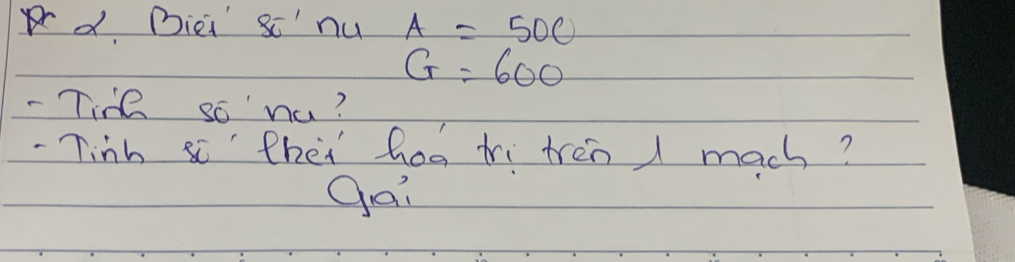 2. Biết số nu A = 500
G = 600
- Tính số nu?
- Tính số lkết hoá trị trên 1 mạch?
Giải